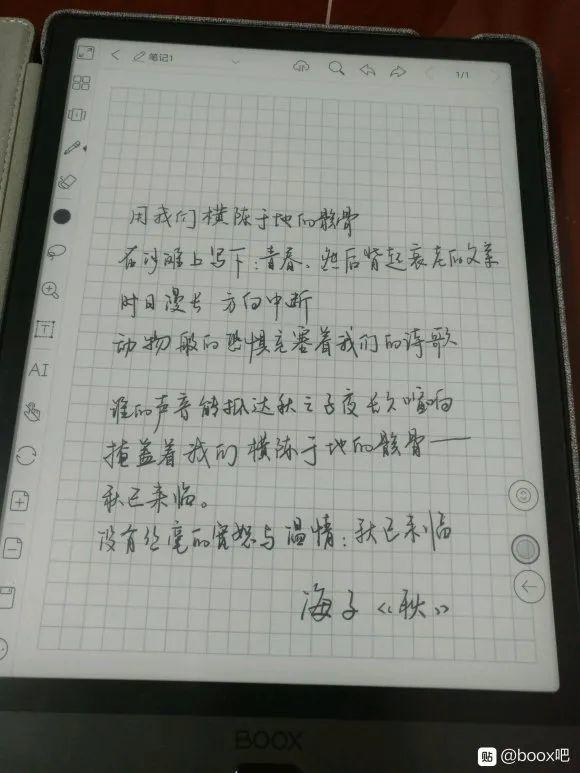 笔记1
1/1
用我们横陈于地的骸骨
在沙滩上写下:青春、然后背起衰老的父亲
时日漫长 方向中断
动物般的恐惧充塞着我们的诗歌
谁的声音能抵达秋之子夜 长久喧响
掩盖着我们横陈于地的骸骨——
秋已来临。
没有丝毫的宽恕与温情:秋已来临
海子《秋》
T
AI
BOOX
贴 @boox吧